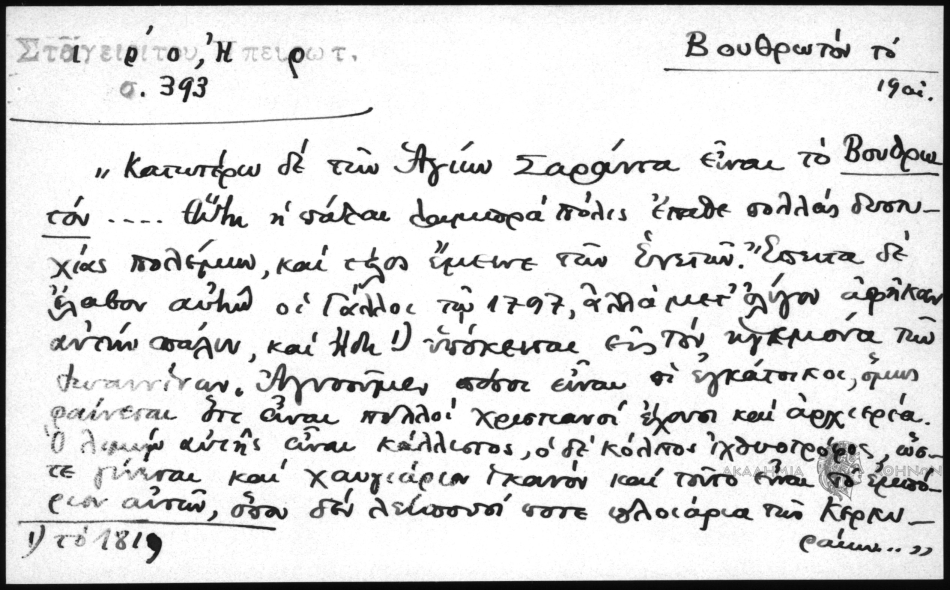 Σταγειρίτου, Ἠπειρωτ.
σ. 393
Βουθρωτόν τό
19 αἰ.
„Κατωτέρω δέ τῶν Ἁγίων Σαράντα εἶναι τό Βουθρω
τόν .... Αὕτη ἡ πάλαι λαμπρά πόλις ἔπαθε πολλάς δυστυ-
χίας πολέμων, καί τέλος ἔμεινε τῶν Ἐνετῶν. Ἔπειτα δέ
ἔλαβον αὐτήν οἱ Γάλλοι τῷ 1797, ἀλλά μετ' ὀλίγον ἀφῆκαν
αὐτήν πάλιν, καί ἤδη 1) ὑπόκειται εἰς τόν ἡγεμόνα τῶν
Ἰωαννίνων. Ἀγνοοῦμεν πόσοι εἶναι οἱ ἐγκάτοικοι, ὅμως
φαίνεται ὅτι εἶναι πολλοί χριστιανοί ἔχουσι καί ἀρχιερέα.
Ὁ λιμήν αὐτῆς εἶναι κάλλιστος, ὁ δέ κόλπος ἰχθυοτρόφος, ὥσ-
τε γίνεται καί χαυγιάριον ἱκανόν καί τοῦτο εἶναι τό ἐμπό-
ριον αὐτῶν, ὅπου δέν λείπουσί ποτε πλοιάρια τῶν Κερκυ-
ραίων..„
1) τό 1819
ΑΚΑΔΗΜΙΑ ΑΘΗΝΩΝ